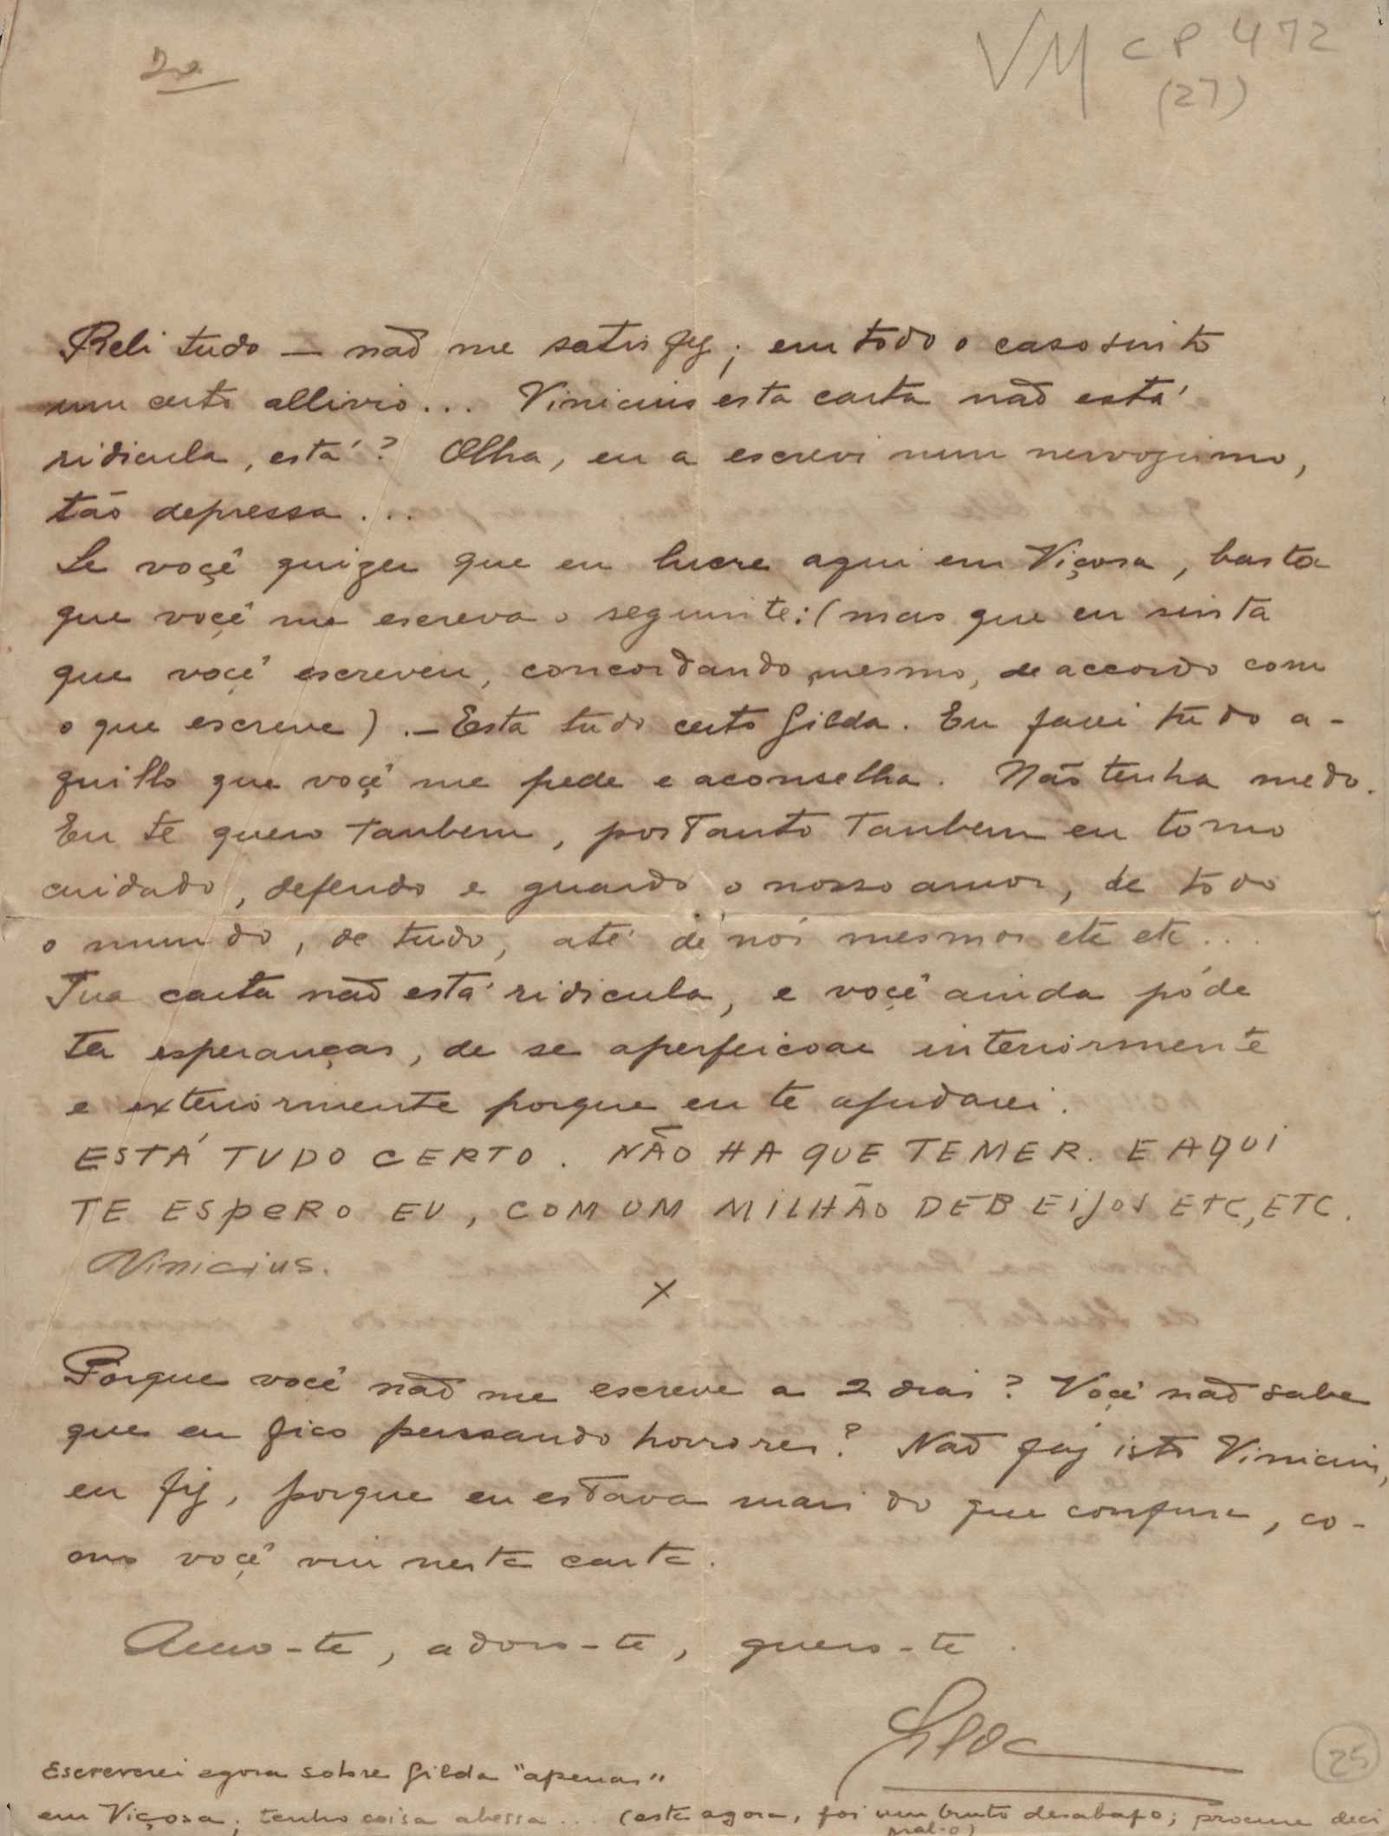 20
VM CP 472
(27)
Reli tudo — não me satisfez; em todo o caso sinto
um certo allivio... Vinicius esta carta não está
ridicula, está? Olha, eu a escrevi num nervozismo,
tão depressa...
Se voçê quizer que eu lucre aqui em Viçosa, basta
que voçê me escreva o seguinte: (mas que eu sinta
que voçê escreveu, concordando mesmo, de accordo com
o que escreve). — Esta tudo certo Gilda. Eu farei tudo a-
quillo que voçê me pede e aconselha. Não tenha medo.
Eu te quero tambem, portanto tambem eu tomo
cuidado, defendo e guardo o nosso amor, de todo
o mundo, de tudo, até de nós mesmos etc etc...
Tua carta não está ridicula, e voçê ainda póde
ter esperanças, de se aperfeicoar interiormente
e exteriormente porque eu te ajudarei.
ESTÁ TUDO CERTO. NÃO HA QUE TEMER. E AQUI
TE ESPERO EU, COM UM MILHÃO DE BEIJOS ETC, ETC.
Vinicius.
X
Porque você não me escreve a 2 dias? Voçê não sabe
que eu fico penssando horrores? Não faz isto Vinicius,
eu fiz, porque eu estava mais do que confusa, co-
mo voçê viu nesta carta.
Amo-te, adoro-te, quero-te.
Gilda
Escreverei agora sobre Gilda "apenas"
em Viçosa; tenho coisa abessa... (esta agora, foi um bruto desabafo; procure deci
fral-o)
25